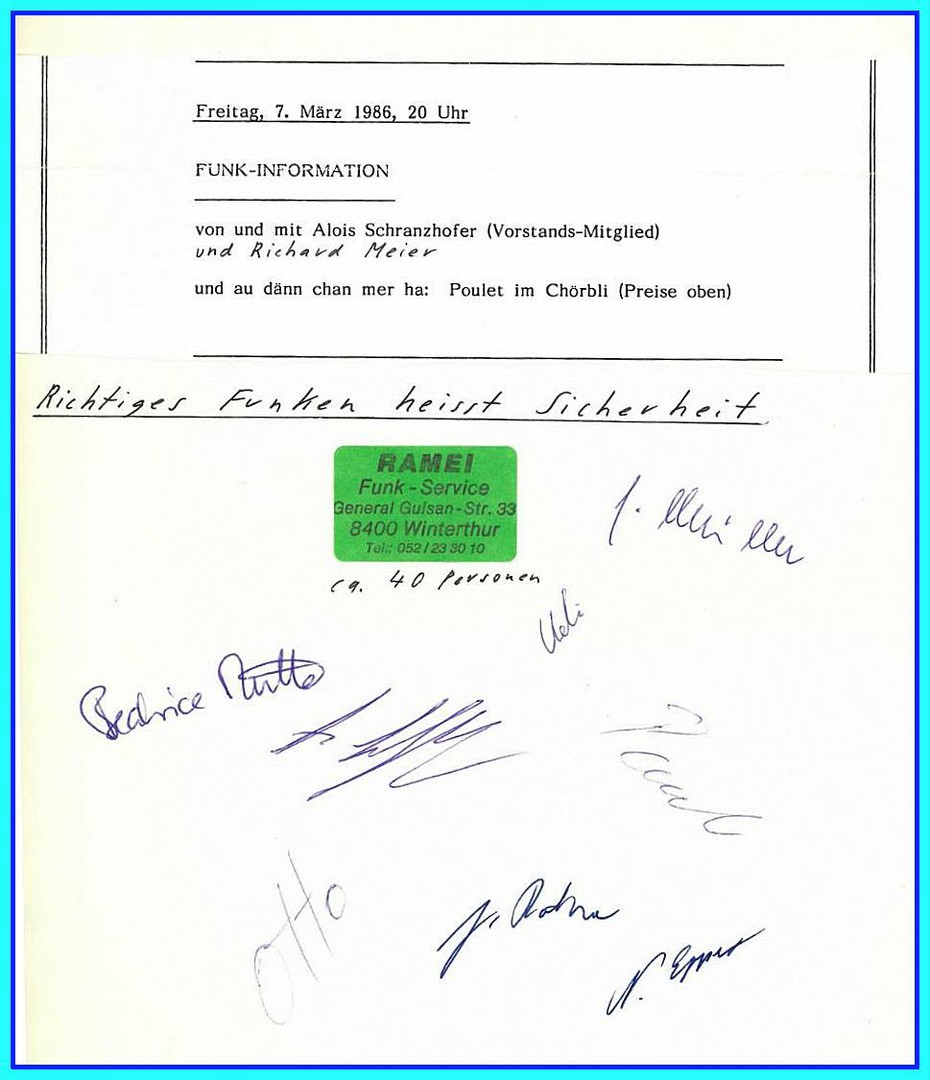 Freitag, 7. März 1986, 20 Uhr
FUNK-INFORMATION
von und mit Alois Schranzhofer (Vorstands-Mitglied)
und Richard Meier
und au dänn chan mer ha: Poulet im Chörbli (Preise oben)
Richtiges Funken heisst Sicherheit
RAMEI
Funk-Service
General Guisan-Str. 33
8400 Winterthur
Tel.: 052/23 30 10
ca. 40 Personen
Ueli
Beatrice
Otto